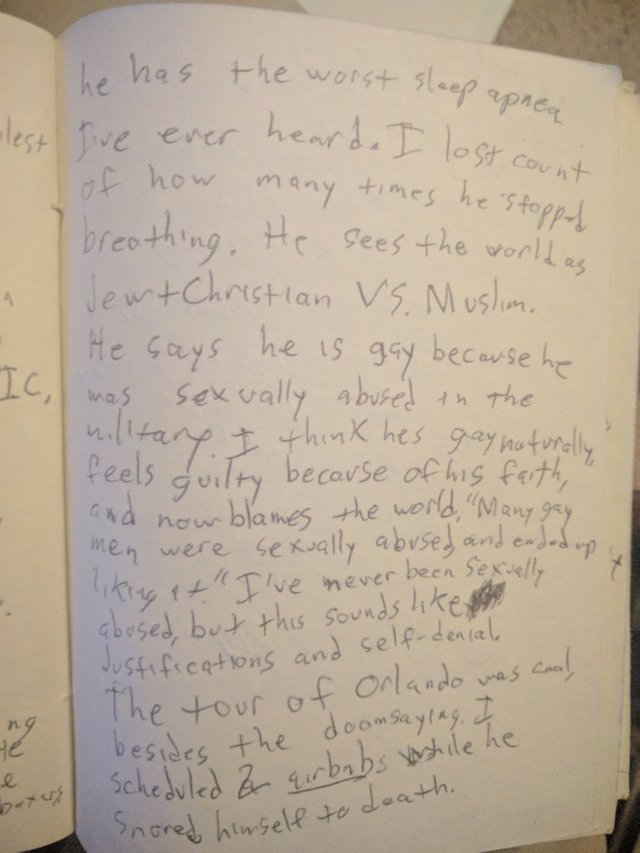 he has the worst sleep apnea
I've ever heard. I lost count
of how many times he stopped
breathing. He sees the world as
Jew+Christian VS. Muslim.
He says he is gay because he
was sexually abused in the
military. I think hes gay naturally,
feels guilty because of his faith,
and now blames the world. "Many gay
men were sexually abused and ended up
liking it." I've never been sexually
abused, but this sounds like
Justifications and self-denial.
The tour of Orlando was cool,
besides the doomsaying. I
scheduled 2 airbnbs while he
snored himself to death.
lest
IC,
ng